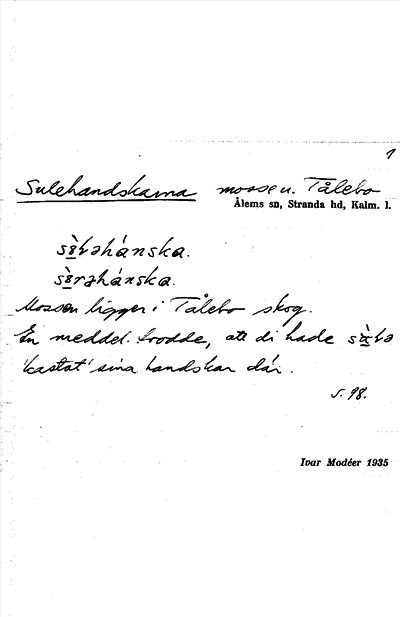 1
Sulehandskarna mosse u. Tålebo
Ålems sn, Stranda hd, Kalm. l.
hánska.
hánska.
Mossen ligger i Tålebo skog.
En meddel. trodde, att di hade
'kastat' sina handskar där.
S. 98.
Ivar Modéer 1935